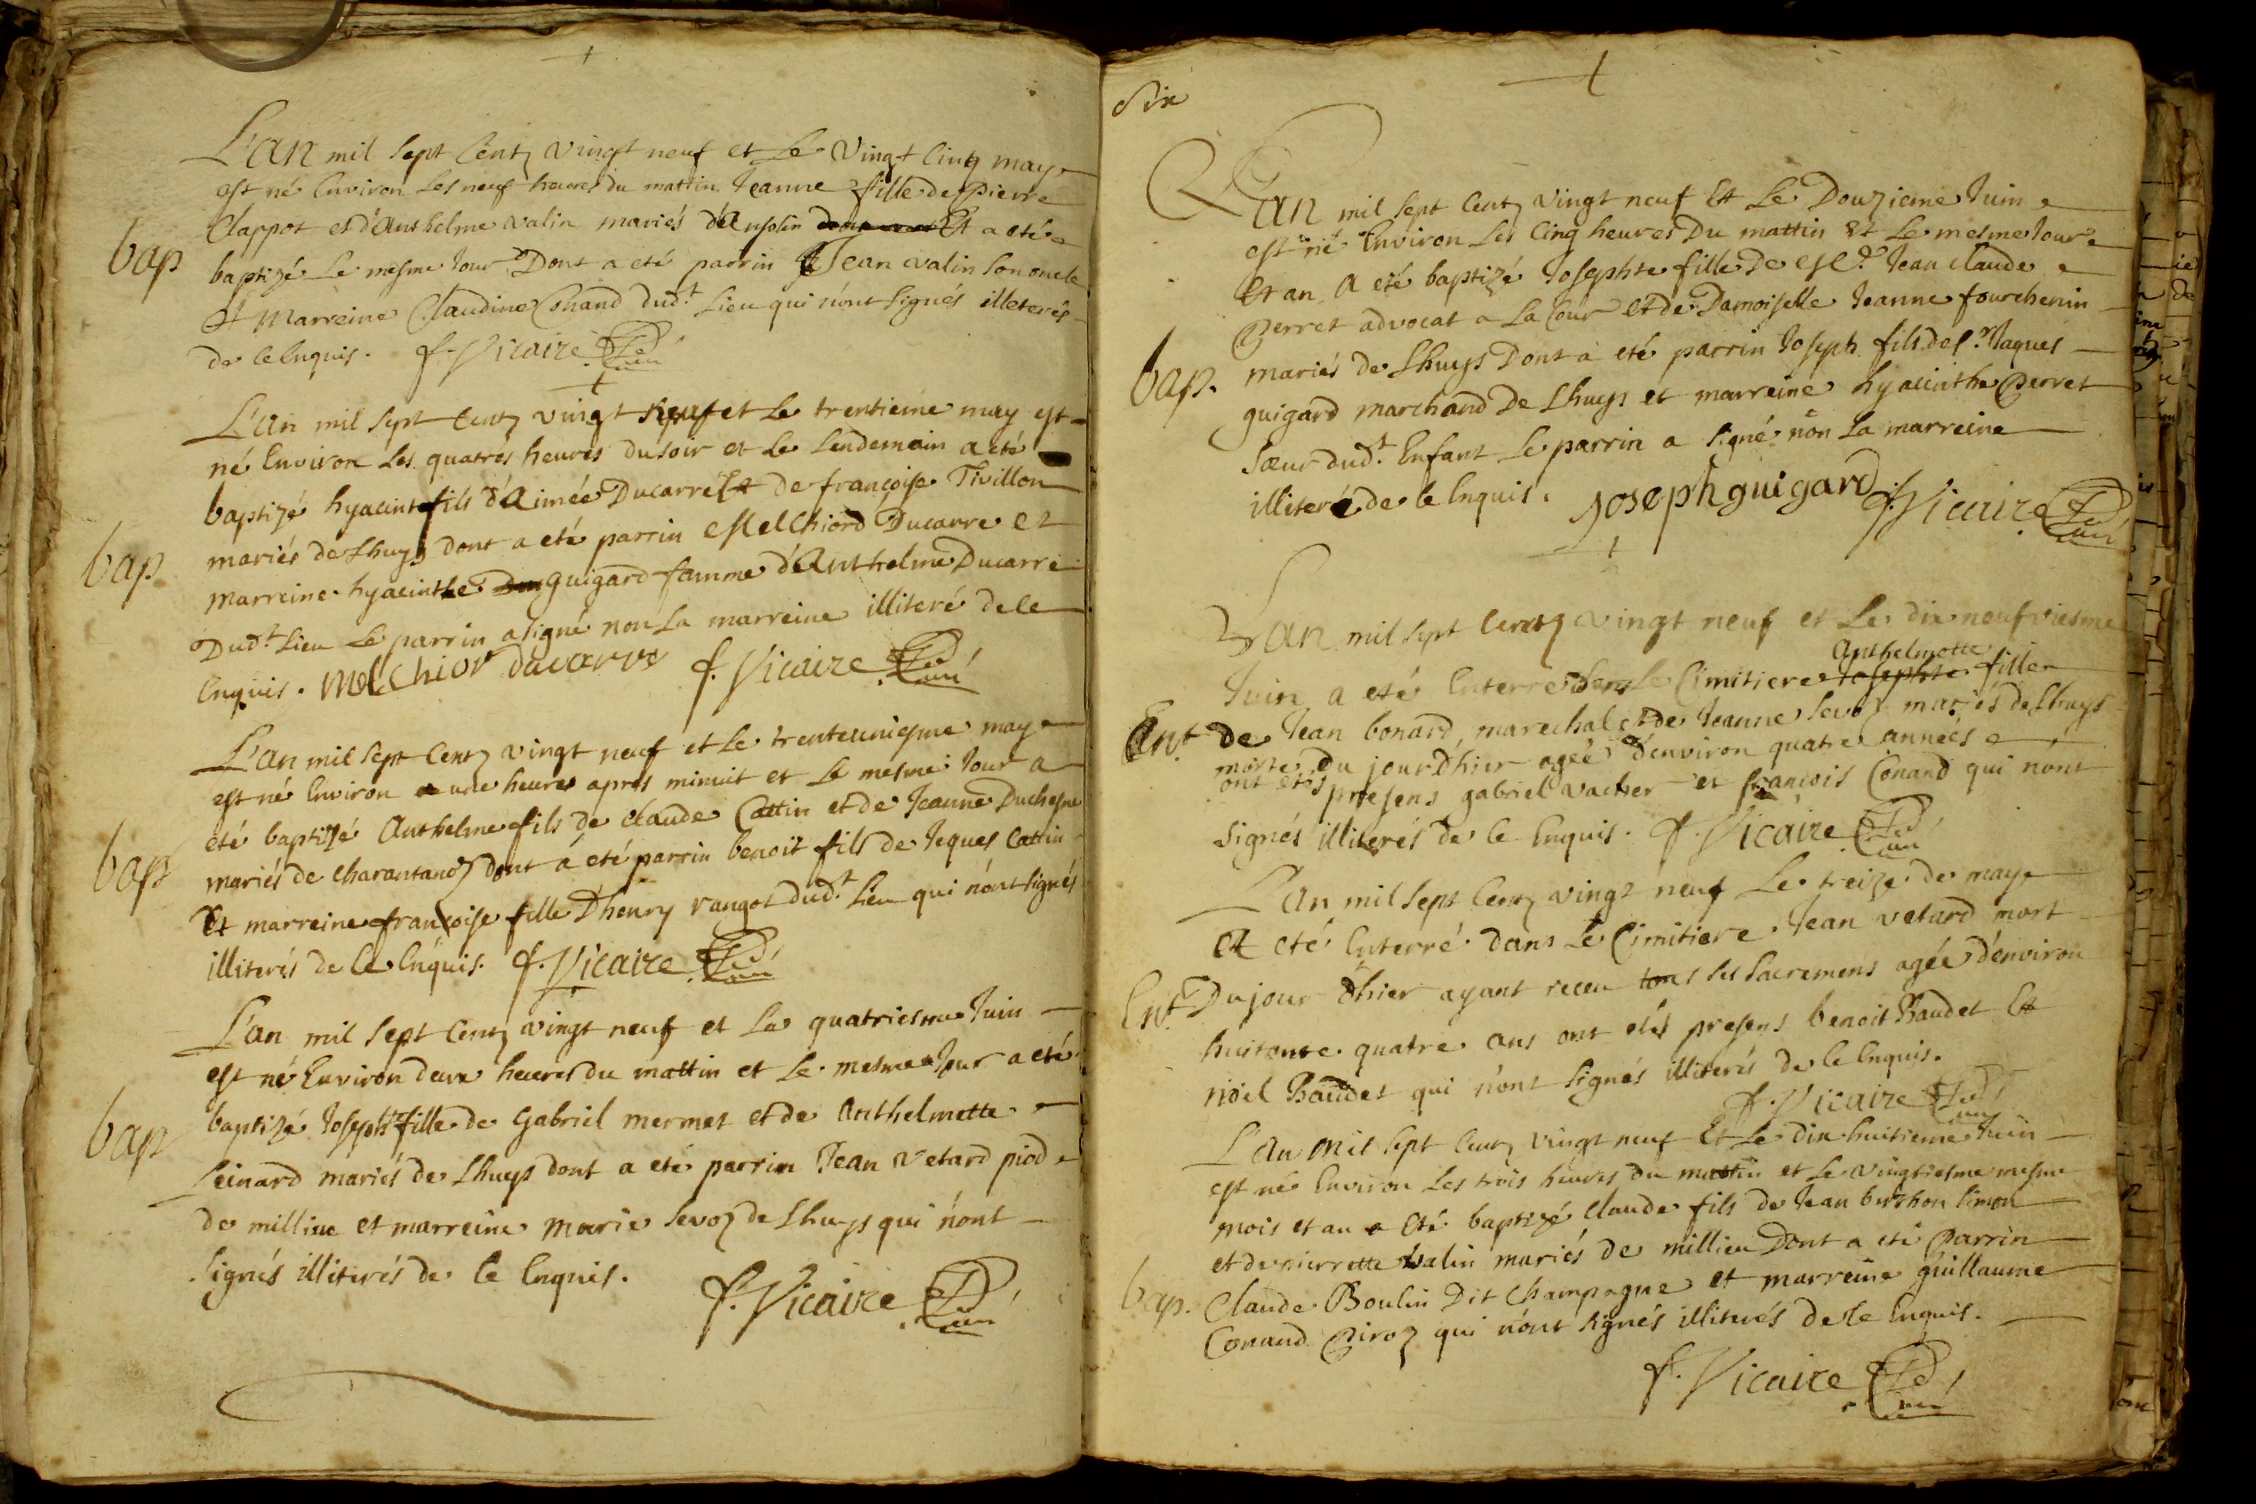 L'an mil sept Centz vingt neuf et Le vingt Cinq may
est né Environ Les neuf heures du mattin Jeanne fille de pierre
Clappot et d'Anthelme valin mariés d'Ansolin Et a eté
bap
baptizé Le mesme Jour Dont a eté parrin Jean valin son oncle
Et Marreine Claudine Conand dud.t Lieu qui n'ont signés illeterés
de ce Enquis. f. Vicaire
L'an mil sept Centz vingt neuf et Le trentieme may est
né Environ Les quatres heures du soir et Le Lendemain a eté
baptizé hyacint fils d'Aimée Ducarre Et de françoise Tivillon
bap
mariés de Lhuys dont a eté parrin Melchiord Ducarre et
marreine hyacinthe guigard famme d'Anthelme Ducarre
Dud.t Lieu Le parrin a signé non La marreine illiteré de ce
Enquis. MelChior ducarre f. Vicaire
L'an mil sept Centz vingt neuf et Le trenteuniesme may
est né Environ une heures apres minuit et Le mesme Jour a
eté baptizé Anthelme fils de claude Cattin et de Jeanne Duchesne
bap
mariés de Charantanoz dont á eté parrin benoit fils de Jeques Cattin
Et marreine françoise fille Dhenry rangot dud.t Lieu qui n'ont signés
illiterés de Ce Enquis. f. Vicaire
L'an mil sept Centz vingt neuf et Le quatriesme Juin
est né Environ deux heures du mattin et Le mesme Jour a eté
bap
baptizé Joseph.te fille de Gabriel mermet et de Anthelmette
Leinard mariés de Lhuys dont a eté parrin Jean vetard piod
de millieu et marreine Marie Sevoz de Lhuys qui n'ont
signés illiterés de Ce Enquis.
f. Vicaire
Six
L'an mil sept Centz vingt neuf Et Le Douzieme Juin
est né Environ Les Cinq heures Du mattin Et Le mesme Jour
Et an a eté baptizé Josephte fille De Jean Claude
Perret advocat a La Cour et de Damoiselle Jeanne fourchenin
bap.
mariés de Lhuys Dont à eté parrin Joseph fils de s.r Jaques
guigard marchand De Lhuys et marreine hyacinthe Perret
sœur dud.t Enfant Le parrin a signé non La marreine
illiteré de Ce Enquis. Joseph guigard f. Vicaire
L'an mil sept Centz vingt neuf et Le dix neufviesme
Anthelmette
Juin a eté Enterré dans Le Cimitiere Josephte fille
Ent.
de Jean bonard, marechal et de Jeanne Sevoz mariés de Lhuys
morte Du jour D'hier agée d'environ quatre années
ont etés presens gabriel vacher et françois Conand qui n'ont
Signés illiterés de Ce Enquis. f. Vicaire
L'an mil sept Centz vingt neuf Le treize de may
et eté Enterré dans Le Cimitiere Jean vetard mort
Ent.
Du jour d'hier ayant receu tous les sacremens agée d'environ
huitante quatre ans ont etés presens benoit Baudet Et
noiel Baudet qui n'ont signés illiterés de Ce Enquis.
f. Vicaire
L'an mil sept Centz vingt neuf Et Le dix huitieme Juin
est né Environ Les trois heures du mattin et Le vingtiesme mesme
mois et an a eté baptizé Claude fils de Jean berthon simon
et de pierrette valin mariés de millieu Dont a eté Parrin
bap.
Claude Boulin Dit Champagne et marreine guillaume
Conand Piroz qui n'ont signés illiterés de Ce Enquis.
f. Vicaire